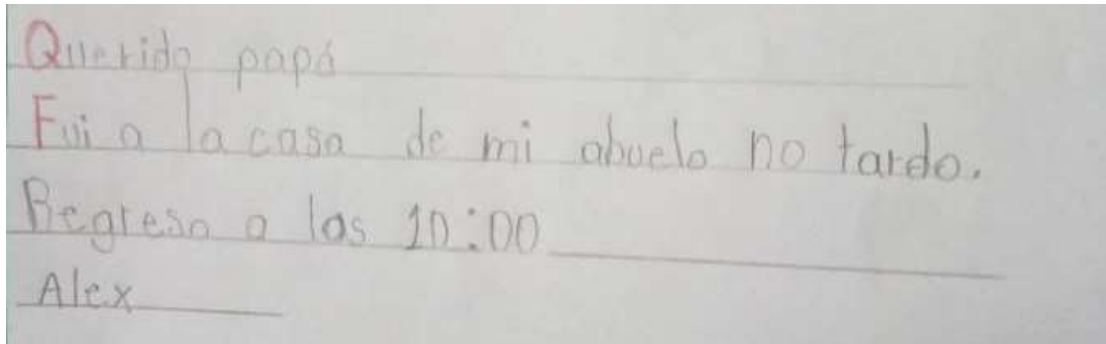 Querido papá
Fui a la casa de mi abuelo no tardo.
Regreso a las 10:00
Alex